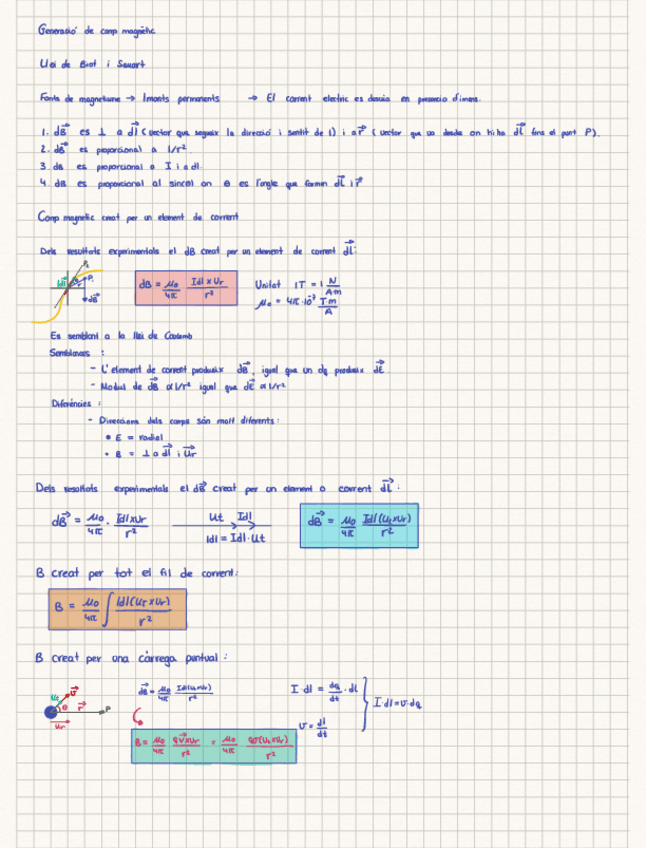 Generació de camp magnètic
Llei de Biot i Savart
Fonts de magnetisme → Imants permanents → El corrent electric es desvia en presencia d'imans.
1. dB⃗ es ⊥ a dl⃗ (vector que segueix la direcció i sentit de I) i a r⃗ (vector que va desde on hi ha dl⃗ fins al punt P).
2. dB⃗ es proporcional a 1/r²
3. dB es proporcional a I i a dl.
4. dB es proporcional al sinθ on θ es l'angle que formen dl⃗ i r⃗
Camp magnetic creat per un element de corrent
Dels resultats experimentals el dB creat per un element de corrent dl⃗:
P₂
Idl
P₁
dB⃗
dB = μ₀/4π Idl × Ur/r²
Unitat 1T = 1 N/Am
μ₀ = 4π·10⁻⁷ Tm/A
Es semblant a la llei de Coulomb
Semblances :
- L'element de corrent produeix dB⃗, igual que un dq produeix dE⃗
- Modul de dB⃗ α 1/r² igual que dE⃗ α 1/r²
Diferències :
- Direccions dels camps són molt diferents:
• E = radial
• B = ⊥ a dl⃗ i Ur⃗
Dels resultats experimentals el dB⃗ creat per un element a corrent dl⃗ :
dB⃗ = μ₀/4π · Idl×Ur/r²
Ut Idl
Idl = Idl·Ut
dB⃗ = μ₀/4π Idl(Ut×Ur)/r²
B creat per tot el fil de corrent:
B = μ₀/4π ∫ Idl(UT×Ur)/r²
B creat per una càrrega puntual :
Ut v⃗
θ r⃗ P
Ur
dB = μ₀/4π Idl(Ut×Ur)/r²
I·dl = dq/dt · dl
v = dl/dt
I·dl = v·dq
B = μ₀/4π qv⃗×Ur/r² = μ₀/4π qv(Ut×Ur)/r²